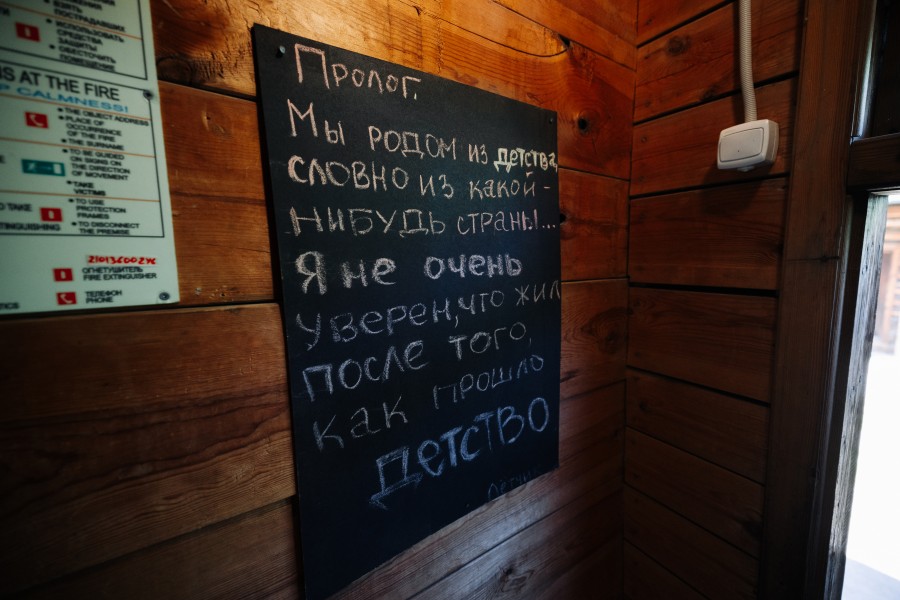 ВЗЯТЬ
ПОСТРАДАВШИХ
ИСПОЛЬЗОВАТЬ
СРЕДСТВА
ЗАЩИТЫ
ОБЕСТОЧИТЬ
ПОМЕЩЕНИЕ
NS AT THE FIRE
P CALMNESS!
• THE OBJECT ADDRESS
• PLACE OF
OCCURRENCE
OF THE FIRE
• THE SURNAME
• TO BE GUIDED
ON SIGNS ON
THE DIRECTION
OF MOVEMENT
• TAKE
VICTIMS
TO TAKE
• TO USE
PROTECTION
FRAMES
TINGUISHING
• TO DISCONNECT
THE PREMISE
ОГНЕТУШИТЕЛЬ
FIRE EXTINGUISHER
ТЕЛЕФОН
PHONE
Пролог.
Мы родом из детства,
словно из какой-
нибудь страны...
Я не очень
уверен, что жил
после того,
как прошло
детство